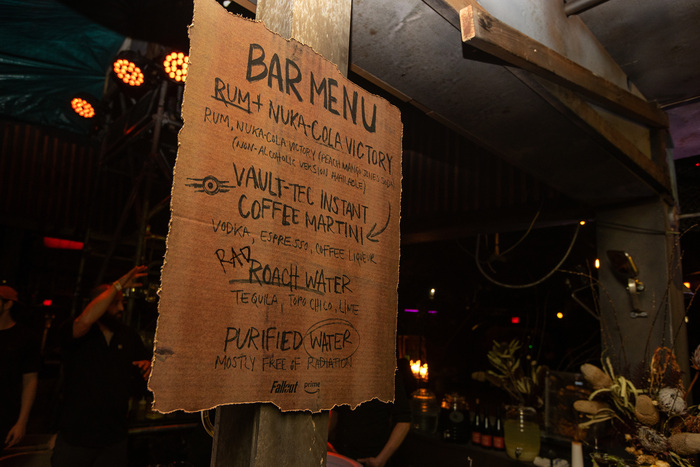 BAR MENU
RUM + NUKA-COLA VICTORY
RUM, NUKA-COLA VICTORY (PEACH MANGO JONES SODA)
(NON-ALCOHOLIC VERSION AVAILABLE)
VAULT-TEC INSTANT
COFFEE MARTINI
VODKA, ESPRESSO, COFFEE LIQUEUR
RAD
ROACH WATER
TEQUILA, TOPO CHICO, LIME
PURIFIED WATER
MOSTLY FREE OF RADIATION
Fallout prime